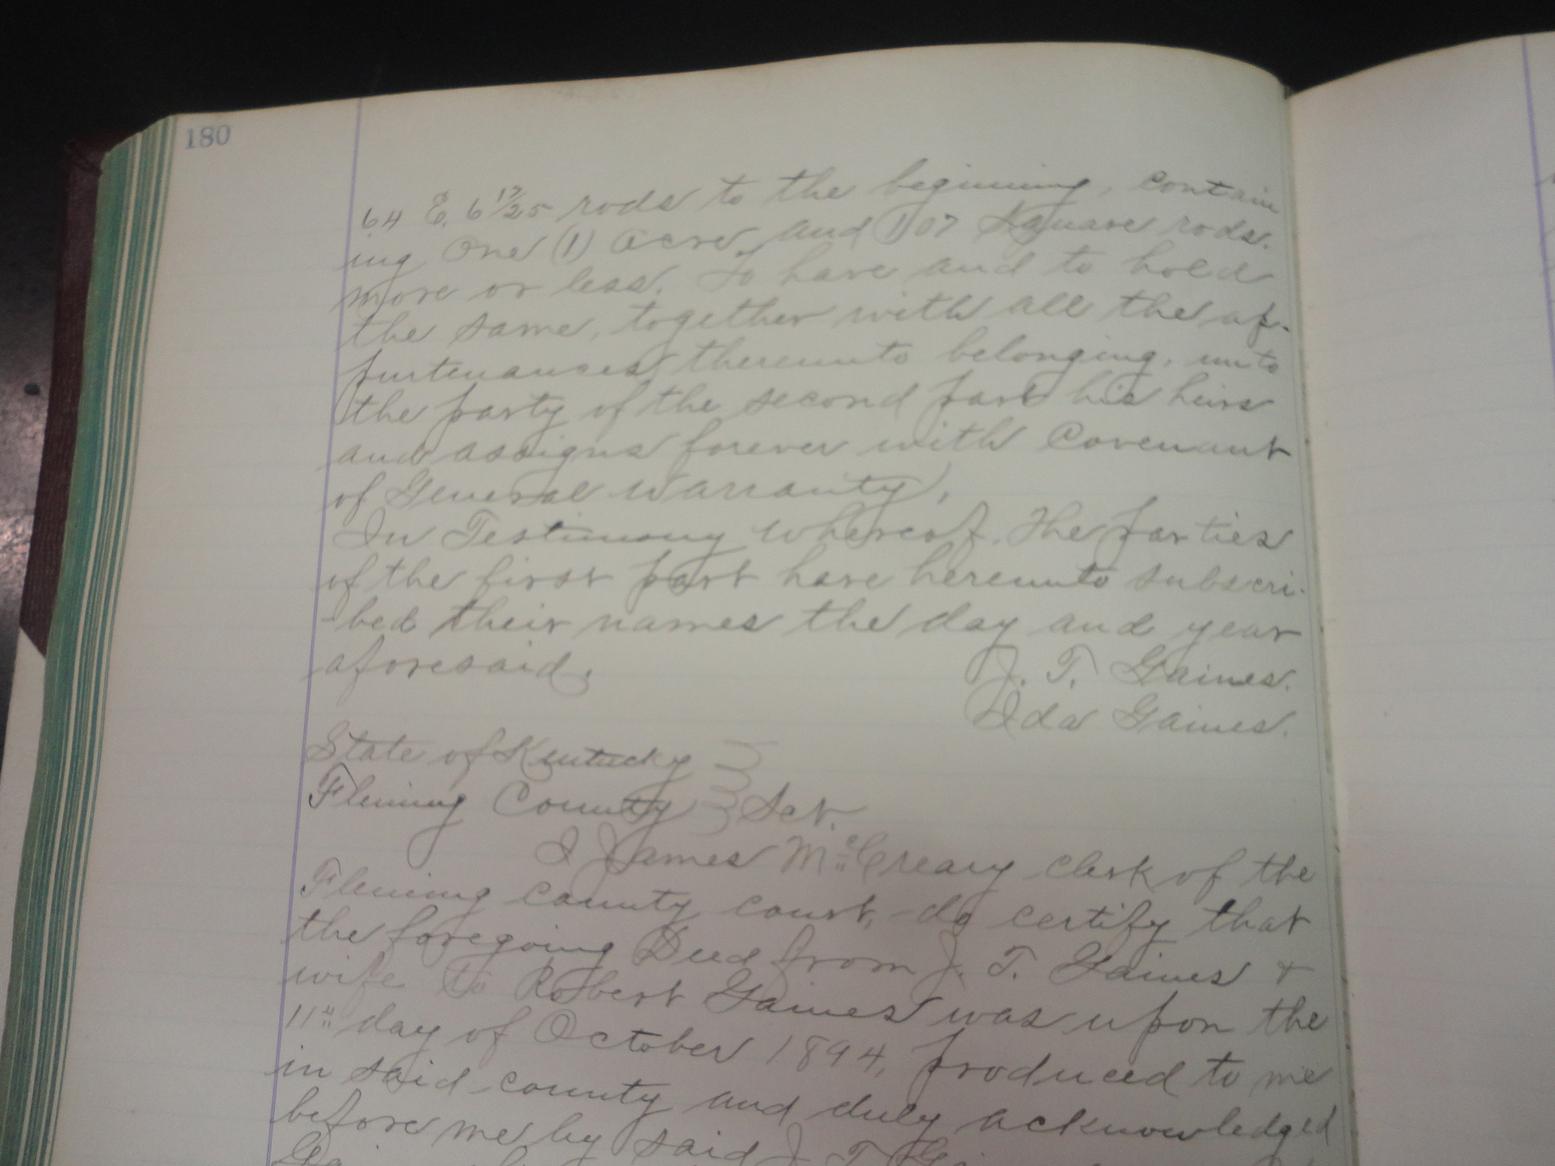 180
64 E. 6 17/25 rods to the begining, contain
ing One (1) Acre, and 107 Square rods.
more or less. To have and to hold
the same, together with all the ap-
purtenances thereunto belonging, unto
the party of the second part his heirs
and assigns forever with Covenant
of General Warranty,
In Testimony Whereof, The parties
of the first part have hereunto subscri-
-bed their names the day and year
aforesaid.
J. T. Gaines.
Ida Gaines.
State of Kentucky
Fleming County } Sct.
I James McCreary clerk of the
Fleming County court, do certify that
the foregoing Deed from J. T. Gaines &
wife to Robert Gaines was upon the
11" day of October 1894, produced to me
in said county and duly acknowledged
before me by said J. T.